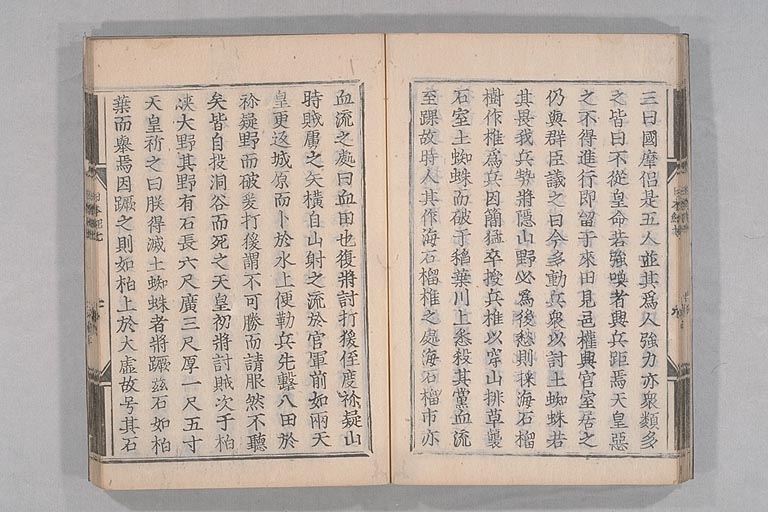 三曰國摩侶是五人並其爲人強力亦衆類多
之皆曰不從皇命若強喚者興兵距焉天皇惡
之不得進行即留于來田見邑權興宮室居之
仍與群臣議之曰今多動兵衆以討土蜘蛛若
其畏我兵勢將隱山野必爲後愁則採海石榴
樹作椎爲兵因簡猛卒授兵椎以穿山排草襲
石室土蜘蛛而破于稻葉川上悉殺其黨血流
至踝故時人其作海石榴椎之處海石榴市亦
血流之處曰血田也復將討打猨侄度祢疑山
時賊虜之矢横自山射之流於官軍前如雨天
皇更返城原而卜於水上便勒兵先擊八田於
祢疑野而破爰打猨謂不可勝而請服然不聽
矣皆自投洞谷而死之天皇初將討賊次于柏
峽大野其野有石長六尺廣三尺厚一尺五寸
天皇祈之曰朕得滅土蜘蛛者將蹶玆石如柏
葉而擧焉因蹶之則如柏上於大虛故号其石